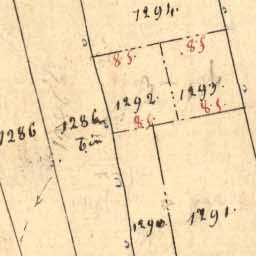 1294.
85. 85.
1292. 1293.
85. 85.
1286 1286
bis
1290 1291.